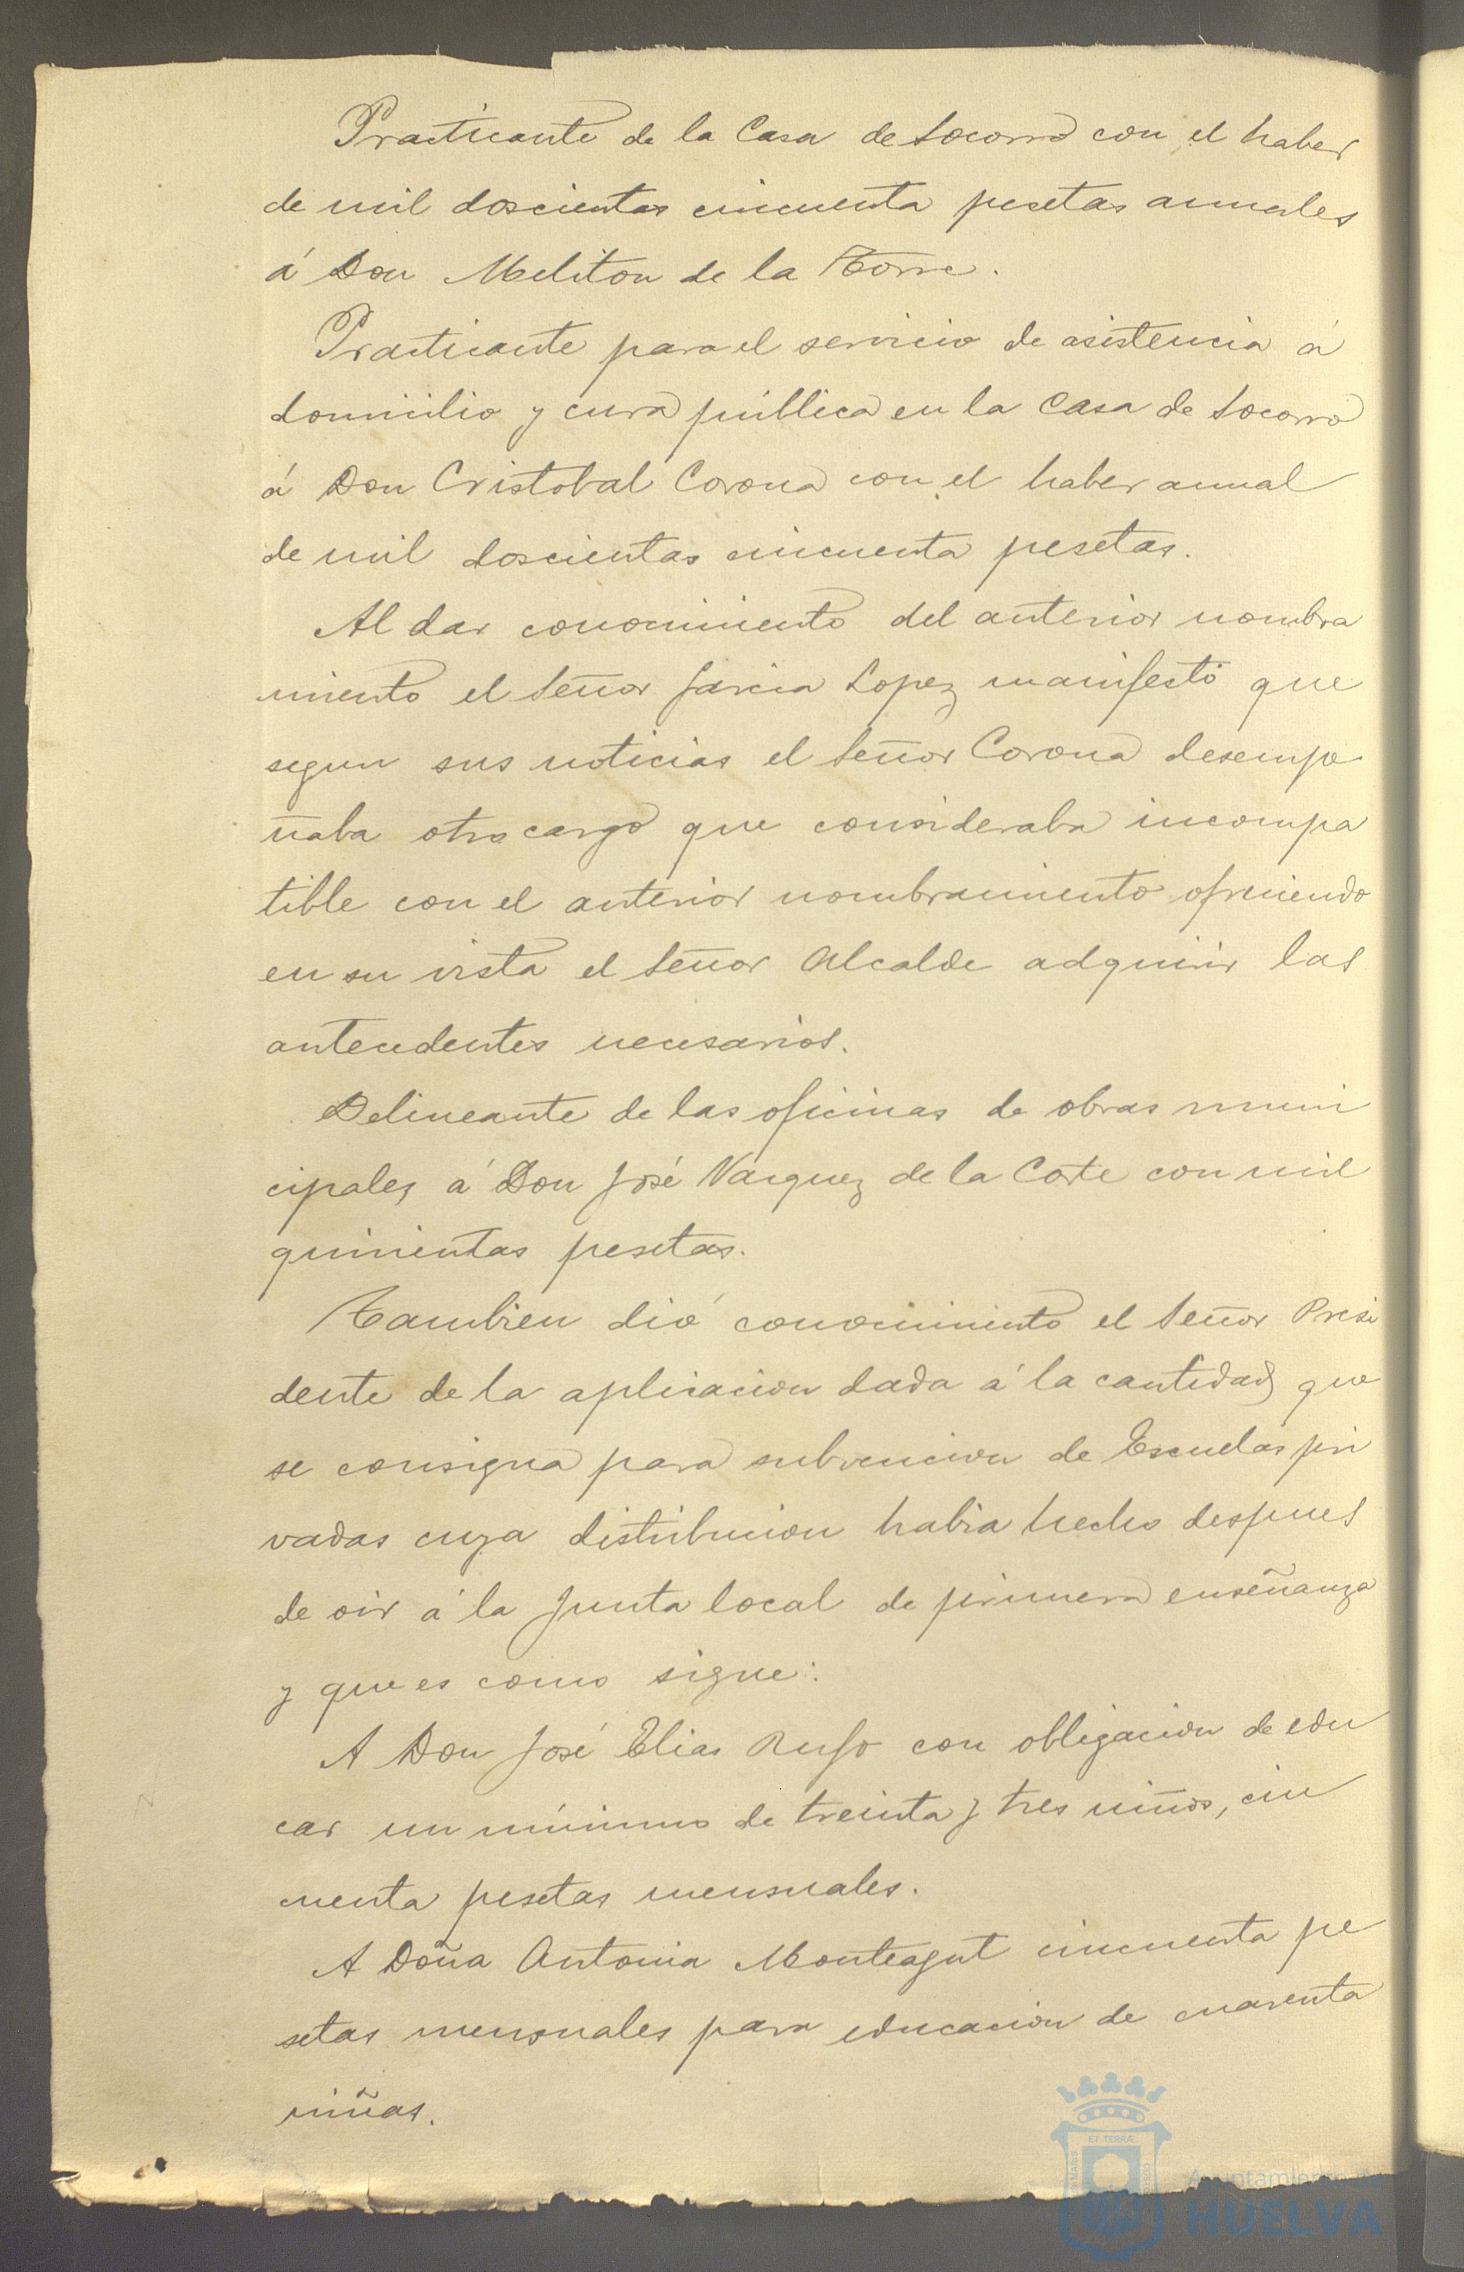 Practicante de la Casa de Socorro con el haber
de mil doscientas cincuenta pesetas anuales
á Don Meliton de la Torre.
Practicante para el servicio de asistencia á
domicilio y cura pública en la Casa de Socorro
á Don Cristobal Corona con el haber anual
de mil doscientas cincuenta pesetas.
Al dar conocimiento del anterior nombra
miento el Señor Garcia Lopez manifestó que
segun sus noticias el Señor Corona desempe
ñaba otro cargo que consideraba incompa
tible con el anterior nombramiento ofreciendo
en su vista el Señor Alcalde adquirir las
antecedentes necesarios.
Delineante de las oficinas de obras muni
cipales á Don José Vazquez de la Corte con mil
quinientas pesetas.
Tambien dió conocimiento el Señor Presi
dente de la aplicacion dada á la cantidad que
se consigna para subvencion de Escuelas pri
vadas cuya distribucion habia hecho despues
de oir á la Junta local de primera enseñanza
y que es como sigue:
A Don José Elias Rufo con obligacion de edu
car un mínimo de treinta y tres niños, cin
cuenta pesetas mensuales.
A Doña Antonia Monteagut cincuenta pe
setas mensuales para educacion de cuarenta
niñas.
ET TERRÆ
Ayuntamiento de
HUELVA